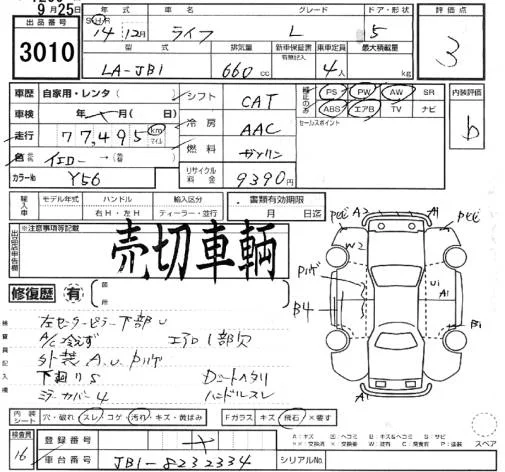 9月25日
年式 車名 グレード ドア・形状 評価点
出品番号 SHR 14 12月 ライフ L 5 3
3010
型式 排気量 新車保証書 有無記入 乗車定員 最大積載量
LA-JB1 660cc 4人 kg
車歴 自家用・レンタ シフト CAT PS PW AW SR 内装評価
車検 年 月(日) 冷房 AAC ABS エアB TV ナビ b
走行 77,495 km マイル セールスポイント
色 イエロー→ 燃料 ガソリン
カラーNo Y56 リサイクル料金 9390円
輸入車 モデル年式 ハンドル 輸入区分 書類有効期限
右H・左H ディーラー・並行 月 日迄
※注意事項等記載
出品店申告欄 売切車輌
修復歴 有 箇所
検査員記入欄
左センターピラー下部U
A/C冷えず エアロ1部欠
外装A.U.
下廻りS
ミラーカバー4 ハンドルスレ
A2 A1
W2
U1
B4 A1
B1
A1
内装シート 穴・破れ スレ コゲ 汚れ キズ・黄ばみ Fガラス キズ 飛石 ×要す
スペア
検査員 16 登録番号
車台番号 JB1-8232334 シリアルNo.